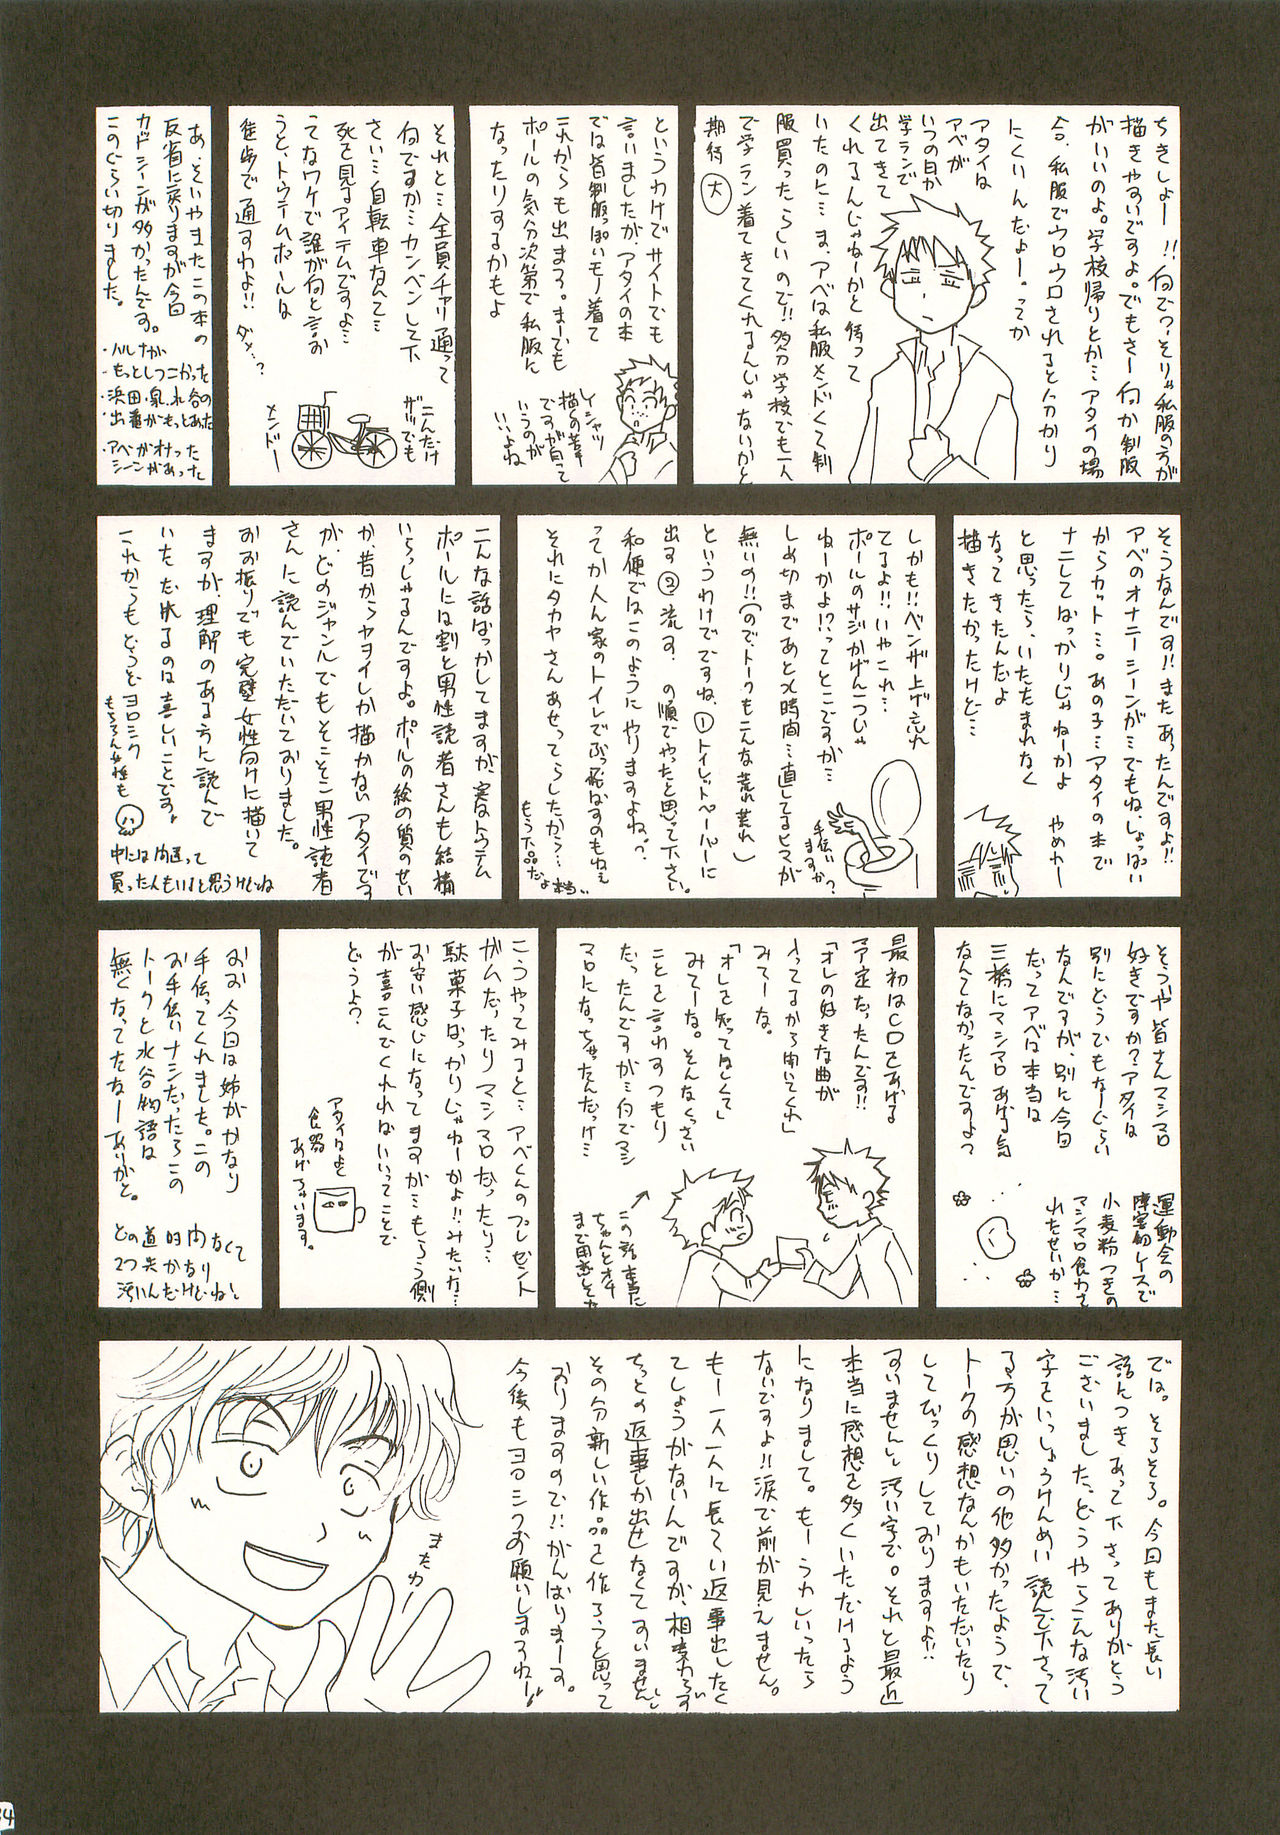 ちきしょー!!何でっ…そりゃ私服の方が
描きやすいですよ。でもさー何か制服
がいいのよ。学校帰りとか…アタイの場
合、私服でウロウロされると分かり
にくいんだよー。ってか
アタイは
アベが
いつの日か
学ランで
出てきて
くれるんじゃねーかと待って
いたのに…ま、アベは私服メンドくて制
服買ったらしいので!!多分学校でも一人
で学ラン着てきてくれるんじゃないかと
期待 大
というわけでサイトでも
言いましたが、アタイの本
では皆制服っぽいモノ着て
これからも出まする。まーでも
ポールの気分次第で私服に
なったりするかもよ
Yシャツ
描くの苦手
ですが言って
いうのが
いいよね
それと…全員チャリ通って
何ですか…カンベンして下
さい…自転車なんて…
死て見るアイテムですよ…
ってなワケで誰が何と言お
うと、トウテムポールは
徒歩で通すわよ!!ダメ…?
こんだけ
ザツでも
メンドー
あ、そいやまたこの本の
反省に戻りますが今回
カドシーンが多かったんです。
このぐらい切りました。
・ハルナが
もっとしつこかった
・浜田・泉・水谷の
出番がもっとあった
・アベがオナった
シーンがあった
そうなんです!!またあったんですよ!!
アベのオナニーシーンが…でもね、しょっぱい
からカット…。あの子…アタイの本で
ナニしてばっかりじゃねーかよ やめれー
と思ったら、いたたまれなく
なってきたんだよ
描きたかったけど…
しかも!!ベンザ上げ忘れ
てるよ!!いやこれ…
ポールのサジかげんつっじゃ
ねーかよ!?ってとこですが…
しめ切まであとメ時間…直してるヒマが
無いの!!(ので、トークもこんな荒れ荒れ)
というわけでですね、①トイレットペーパーに
出す②流す、の順でやったと思って下さい。
和便ではこのようにやりますよね?
ってか人ん家のトイレでぶっ放すのもねぇ
それにタカヤさんあせってらしたから…
もう下品だよ本当…
手伝い
ますか?
こんな話ばっかしてますが、実はトウテム
ポールには割と男性読者さんも結構
いらっしゃるんですよ。ポールの絵の質のせい
か、昔からヤヨイしか描かないアタイです
が、どのジャンルでもそこそこ男性読者
さんに読んでいただいておりました。
おお振りでも完璧女性向けに描いて
ますが、理解のある方に読んで
いただけるのは喜しいことです。
これからもどうぞヨロシク
もちろん女性も
中には間違って
買った人もいると思うけどね
そういや皆さんマシマロ
好きですか?アタイは
別にどうでもなーぐらい
なんですが、別に今回
だってアベは本当は
三橋にマシマロあげる気
なんてなかったんですよっ
運動会の
障害物レースで
小麦粉つきの
マシマロ食わさ
れたせいか…
最初はCDをあげる
予定だったんです!!
「オレの好きな曲が
入ってるから聞いてくれ」
みてーな。
「オレを知ってほしくて」
みてーな。そんなくっさい
ことを言わすつもり
だったんですが…何でマシ
マロになっちゃったんだっけ…
この話本当に
ちゃんとオチ
まで用意してた
こうやってみると…アベくんのプレゼント
がムだったりマシマロだったり…
駄菓子ばっかりじゃねーかよ!!みたいな…
お安い感じになってますが…もらう側
が喜こんでくれればいいってことで
どうよ?
アタイはよく
食器
あげちゃいます。
おお今回は姉がかなり
手伝ってくれました。この
お手伝いナシだったらこの
トークと水谷物語は
無くなってたなーありがと。
どの道 時間なくて
2つ共 かなり
汚いんだけどね…
では。そろそろ。今回もまた長い
話につきあって下さってありがとう
ございました。どうやらこんな汚い
字をいっしょうけんめい読んで下さって
る方が思いの他多かったようで、
トークの感想なんかもいただいたり
してびっくりしておりますよ!!
すいませんし汚い字で。それと最近
本当に感想を多くいただけるよう
になりまして。もーうれしいったら
ないですよ!!涙で前が見えません。
もー一人一人に長ぐい返事出したく
てしょうがないんですが、相変わらず
ちょっとの返事しか出せなくてすいません。
その分新しい作品を作ろうと思って
おりますので!!がんばりまーす。
今後もヨロシクお願いしまするねー!
またね
34